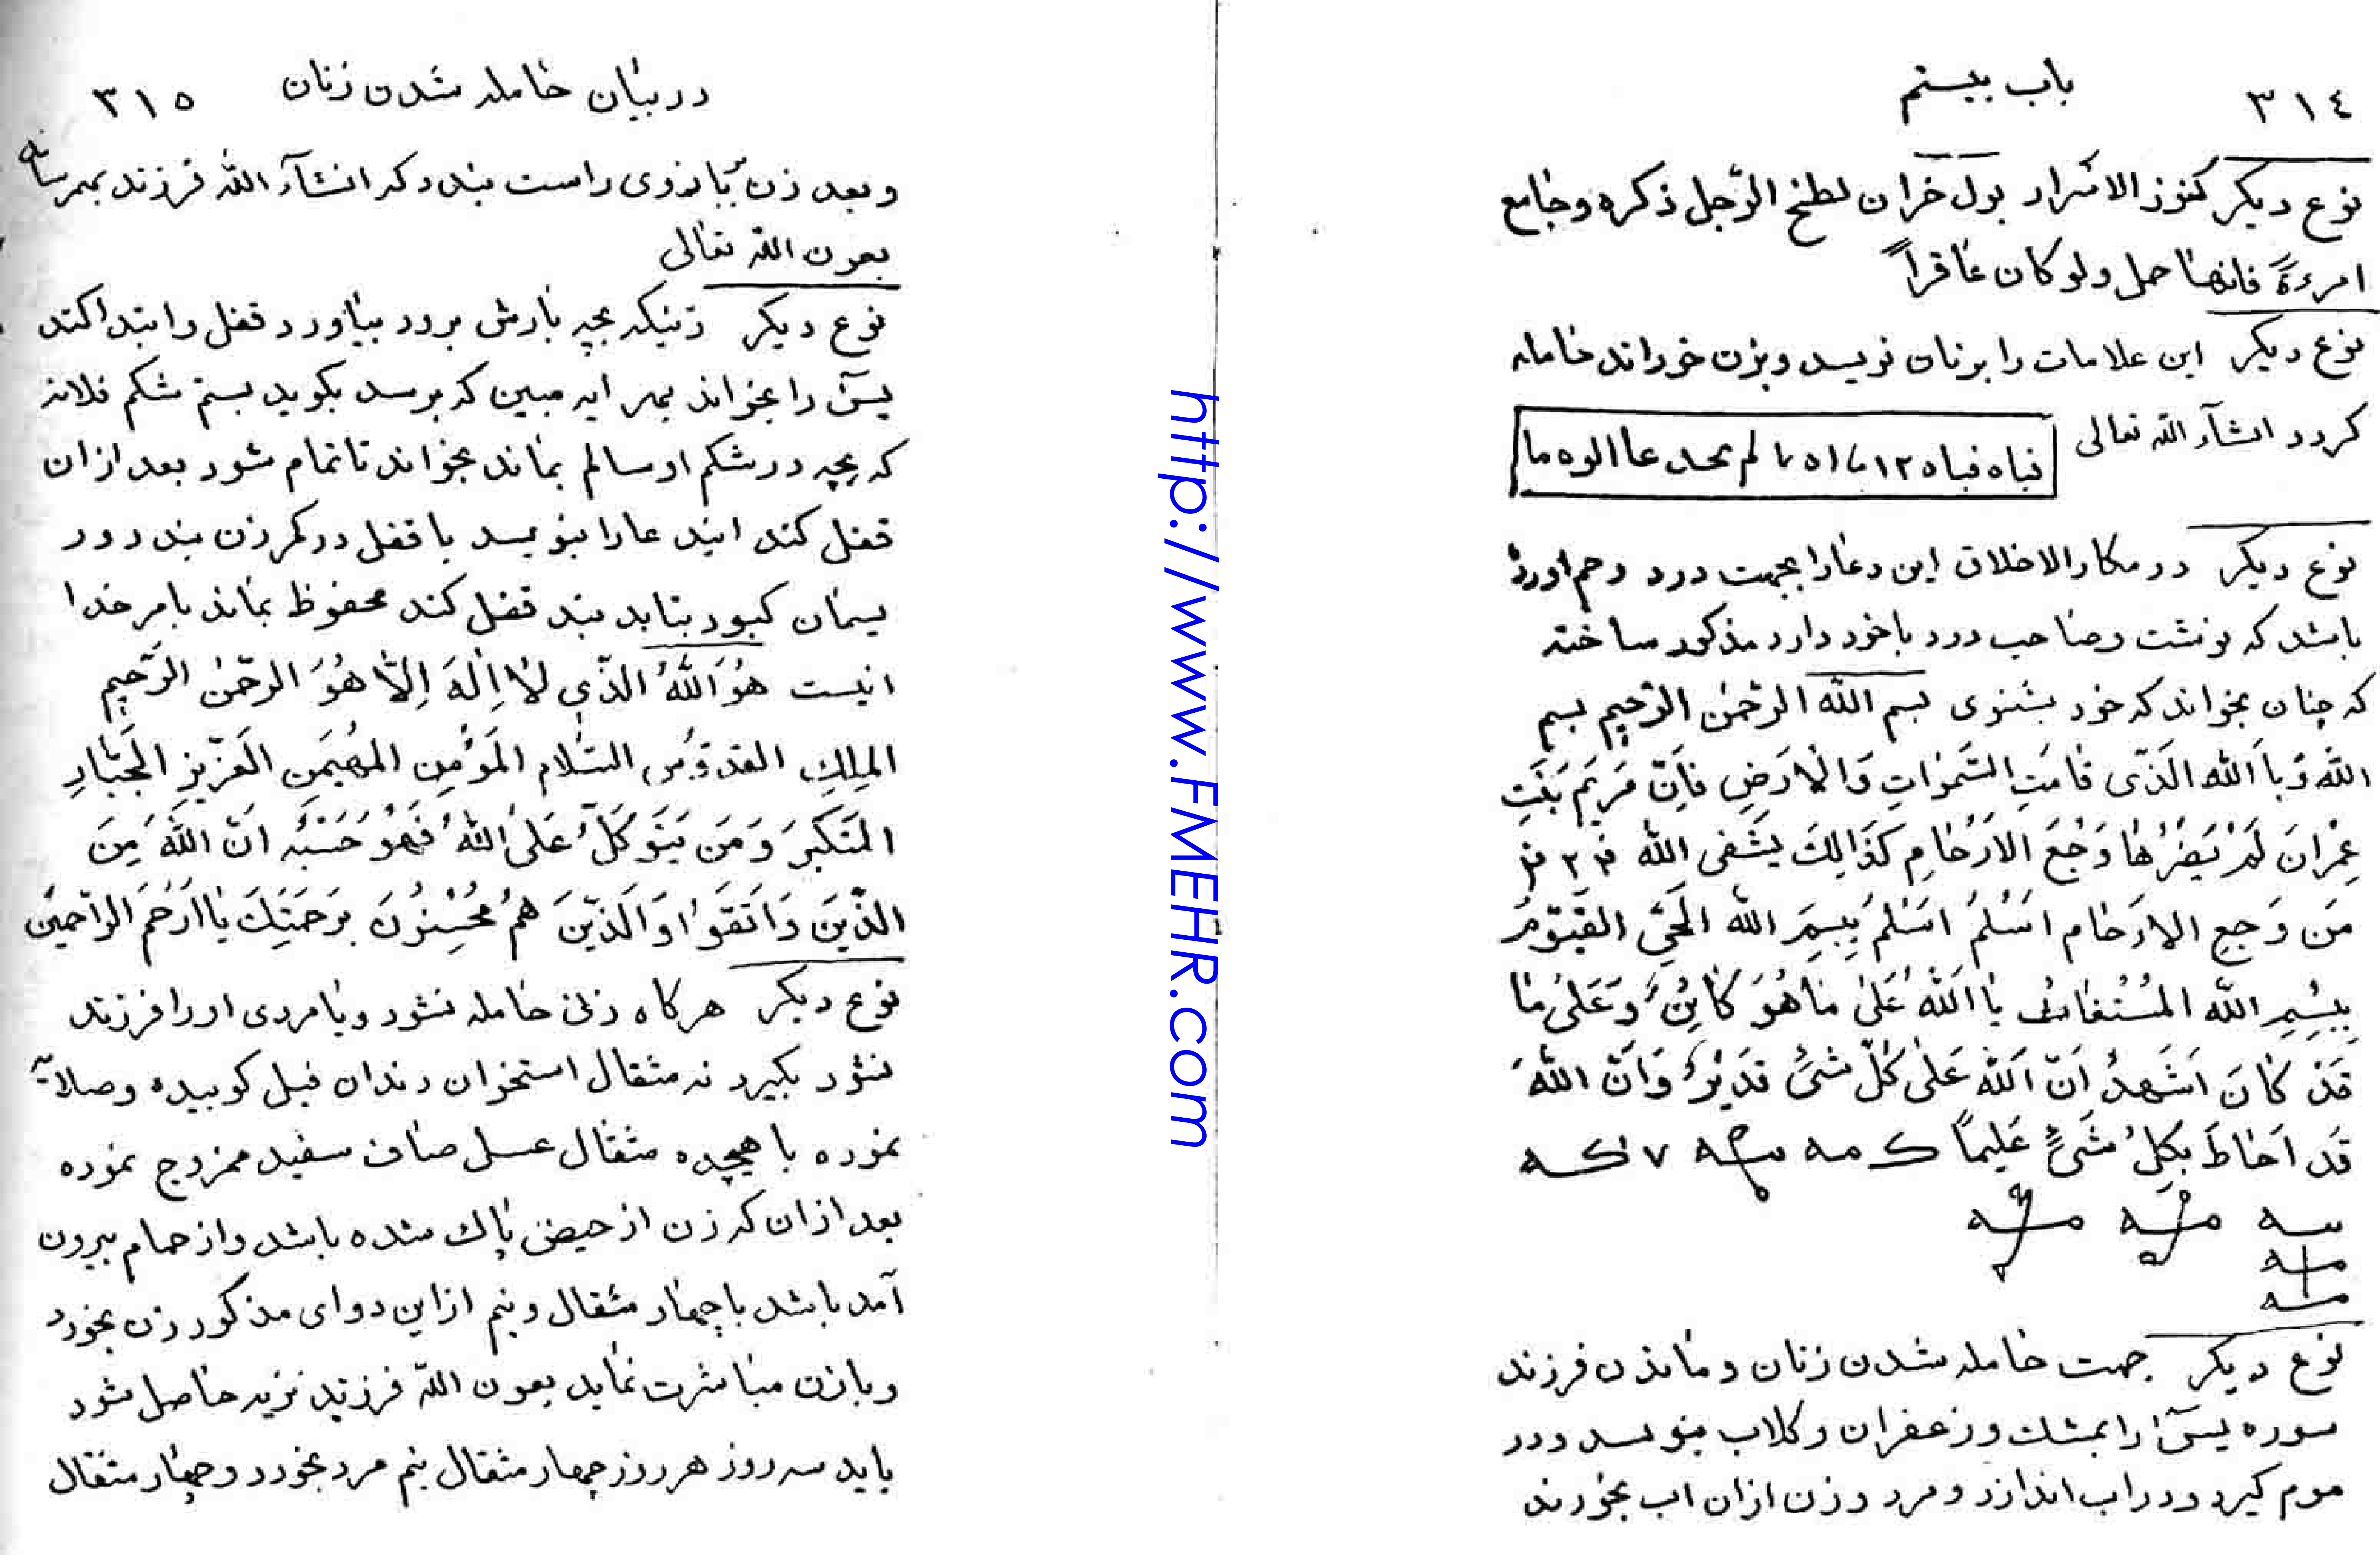 باب بیستم ٣١٤
نوع دیکر کنوز الاسرار بول خران لطخ الرّجل ذکره وجامع
امرءةً فانها حمل ولو کان عاقراً
نوع دیکر این علامات را برنان نویسد وبزن خوراند حامله
کردد انشآء اللّه تعالی
نوع دیکر در مکارالاخلاق این دعارا بجهت درد رحم اورده
باشد که نوشت وصاحب درد باخود دارد مذکور ساخته
که چنان بخواند که خود بشنوی بسم اللّه الرّحمٰن الرّحیم بسم
اللّه وَبِاللّه الَّذی قامَتِ السَّمٰواتِ وَالْاَرَضِ فَاِنّ مَریَم بَنَتِ
عِمْرانَ لَمْ یَضُرّهٰا وَجَعَ الاَرْحٰامِ کَذَالِكَ یَشْفی اللّه
مَن وَجَعِ الاَرحٰام اسْلمُ اسْلمُ بِبِسِمِ اللّه الحَیّ القَیّوُمُ
بِبِسِمِ اللّه المُسْتَغاث یٰا اَللّهُ عَلیٰ مٰا هُوَ کٰایِنُ وَعَلیٰ مٰا
قَدْ کٰانَ اَشَهدُ اَنّ اَللّه عَلیٰ کُلّ شَیُ قَدیْرُ وَاَنّ اللّهَ
قَد اَحٰاطَ بِکلُ شَیٍ عَلیماً
نوع دیکر جهت حامله شدن زنان وماندن فرزند
سوره یسٓ را بمشك وزعفران وکلاب بنویسد ودر
موم کیرد ودراب اندازد ومرد وزن ازان اب بخورند
در بیان حامله شدن زنان ٣١٥
وبعد زن ببازوی راست بندد که انشآء اللّه فرزند بمرساند
بعون اللّه تعالی
نوع دیکر زنیکه بچه بارش برود بیاورد قفل را ابتدا کند
یسٓ را بخواند بهر ایه مبین که برسد بکوید بستم شکم فلانه
که بچه در شکم او سالم بماند بخواند تا تمام شود بعد ازان
قفل کند ایند عارا بنویسد با قفل در کمر زن بندد ور
یسمان کبود بتابد بند قفل کند محفوظ بماند بامر خدا
اینست هُوَ اَللّهُ الَّذی لاٰ اِلٰهَ اِلّاٰ هُوَ الرحّمٰن الرَّحیم
المِلِكِ القدوّس السّلام المَوْمِن المهُیَمِن العَزّیزِ الجَبّارِ
المَتَکَبِّرَ وَمَن یَتَوکَلّ عَلیَ اللّهُ فَهُوَ حَسَبُهُ انّ اللّهَ مِنَ
الذّینَ وَاتَقَوُا وَالَذّینَ هُم مُحُسِنوُنَ بِرَحمَتِكَ یٰا اَرَحَمَ الرٰاحمینَ
نوع دیکر هرکاه زنی حامله نشود ویامردی اورا فرزند
نشود بکیرد نه مثقال استخوان دندان فیل کوبیده وصلایه
نموده با هیجده مثقال عسل صاف سفید ممزوج نموده
بعد ازان که زن از حیض پاك شده باشد واز حمام بیرون
آمد باشد باچهار مثقال ونیم ازاین دوای مذکور زن بخورد
وبازن مباشرت نماید بعون اللّه فرزند نرینه حاصل شود
باید سه روز هر روز چهار مثقال نیم مرد بخورد وچهار مثقال
http://www.FMEHR.com